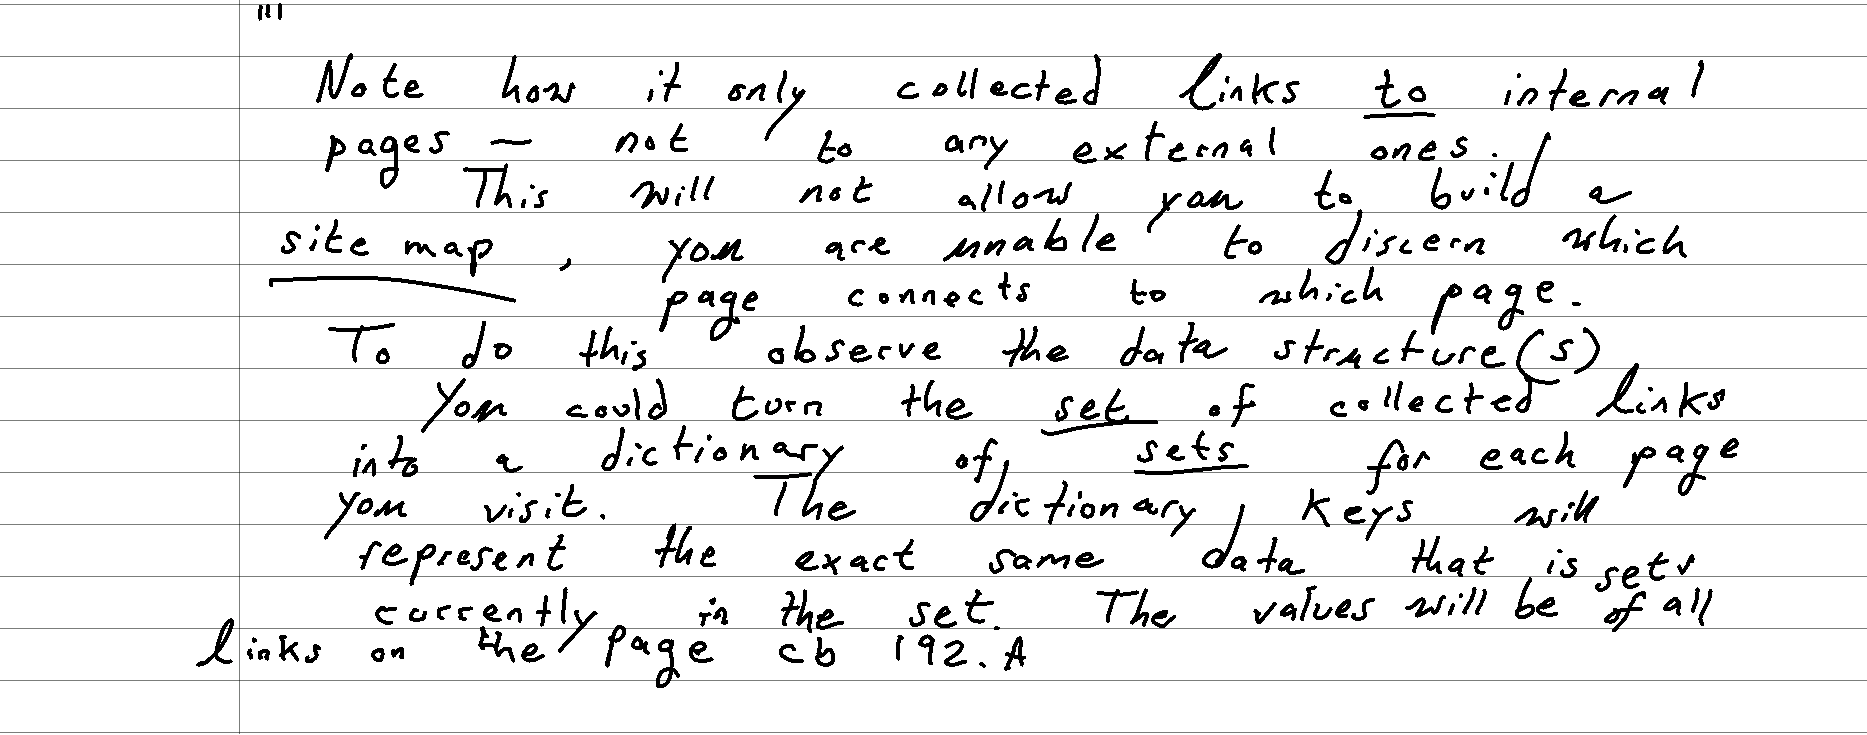 "'
Note how it only collected links to internal
pages – not to any external ones.
This will not allow you to build a
site map, you are unable to discern which
page connects to which page.
To do this observe the data structure(s)
You could turn the set of collected links
into a dictionary of sets for each page
you visit. The dictionary keys will
represent the exact same data that is
currently in the set. The values will be sets of all
links on the page cb 192.A